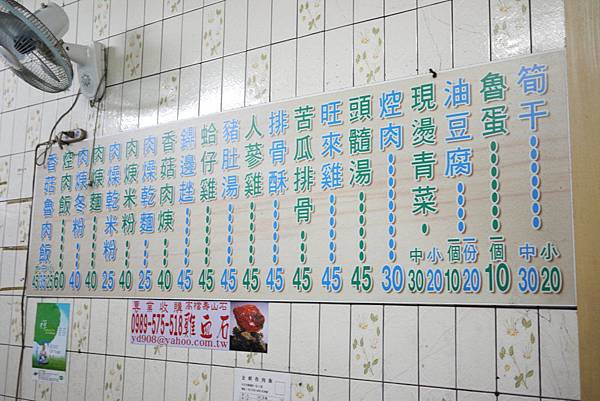 香菇魯肉飯 45 35 25
空肉飯 60
肉焿冬粉 40
肉焿麵 40
肉燥乾米粉 25
肉焿米粉 40
肉燥乾麵 25
香菇肉焿 40
鍋邊趖 45
蛤仔雞 45
豬肚湯 45
人蔘雞 45
排骨酥 45
苦瓜排骨 45
旺來雞 45
頭髓湯 45
焢肉 30
現燙青菜 中30 小20
油豆腐 一個10 一份20
魯蛋 一個10
筍干 中30 小20
專業收購 高檔壽山石
0989-575-518 雞血石
yd908@yahoo.com.tw